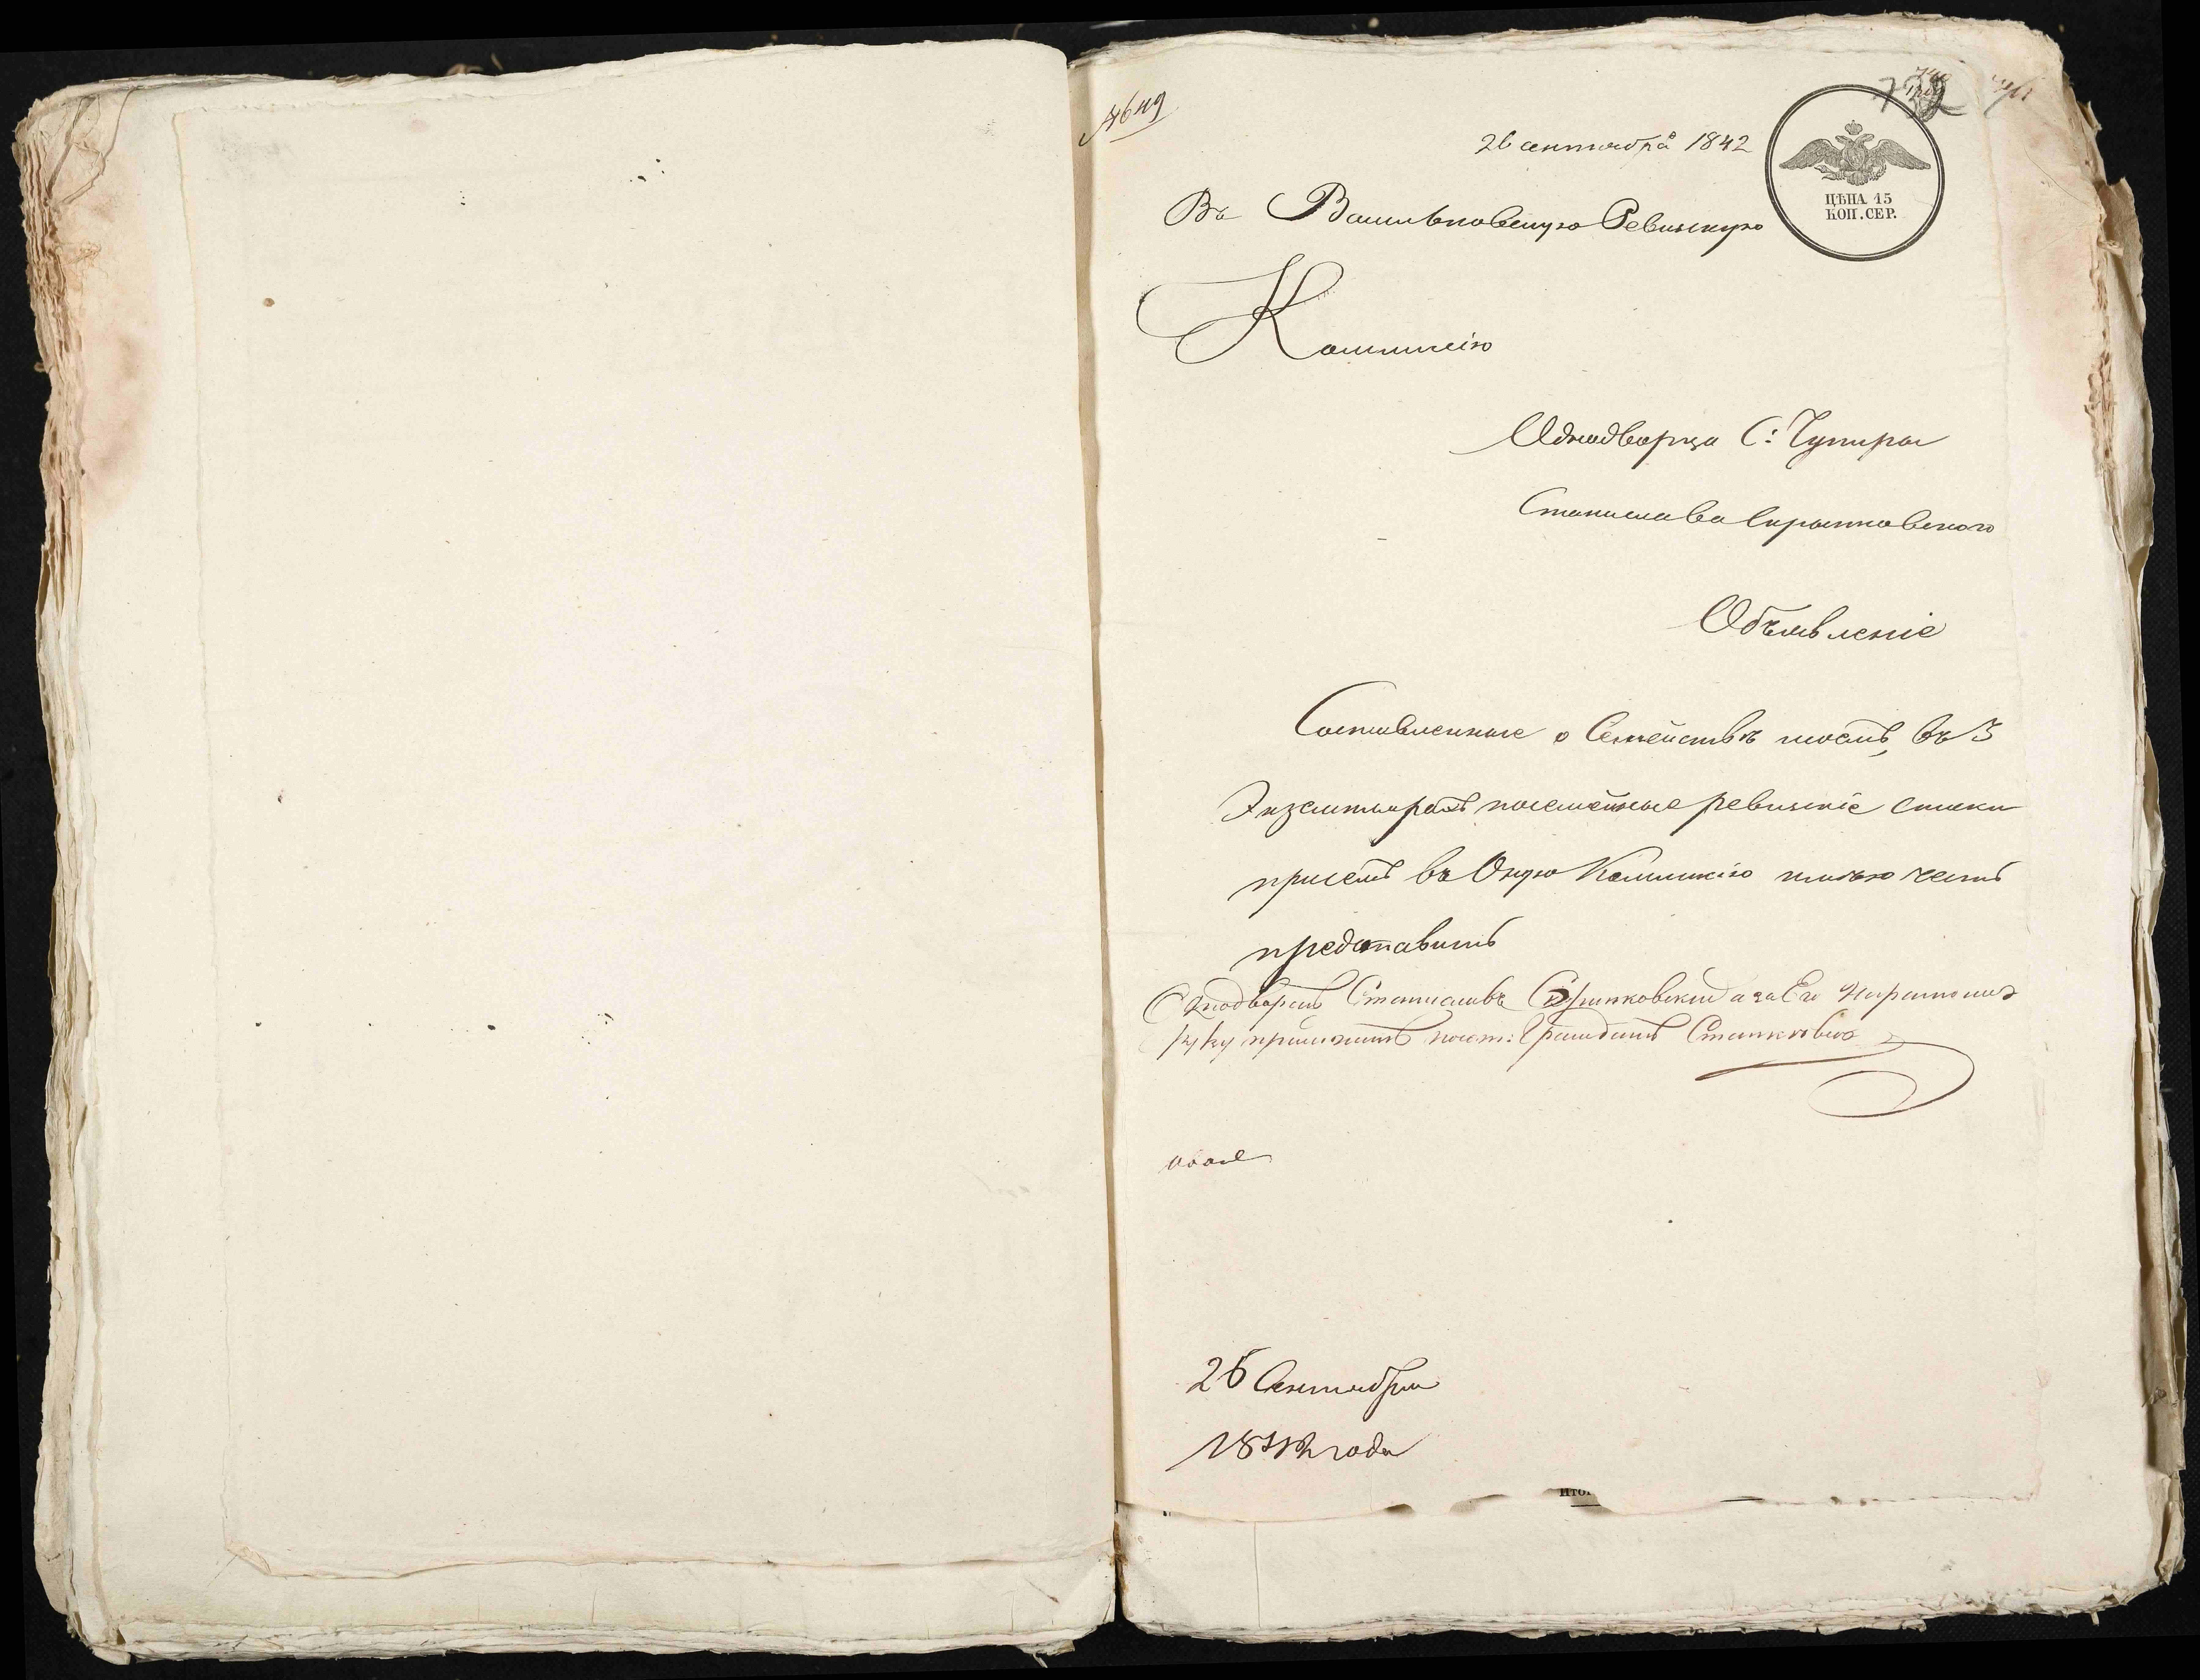 4649
26 сентября 1842
ЦѢНА 15
КОП. СЕР.
Въ Васильковскую Ревизскую
Коммисію
Однодворца С: Чупиры
Станислава
Объявленіе
Составленные о Семействѣ моемъ, въ 3
Экземплярахъ посемейные ревизкіе списки
присемъ въ Оную Коммисію имѣю честь
представить
Однодворецъ Станиславъ а за Его Неграмотнаго
руку приложилъ почет: Гражданъ Станкевичъ
26 Сентября
1842 года